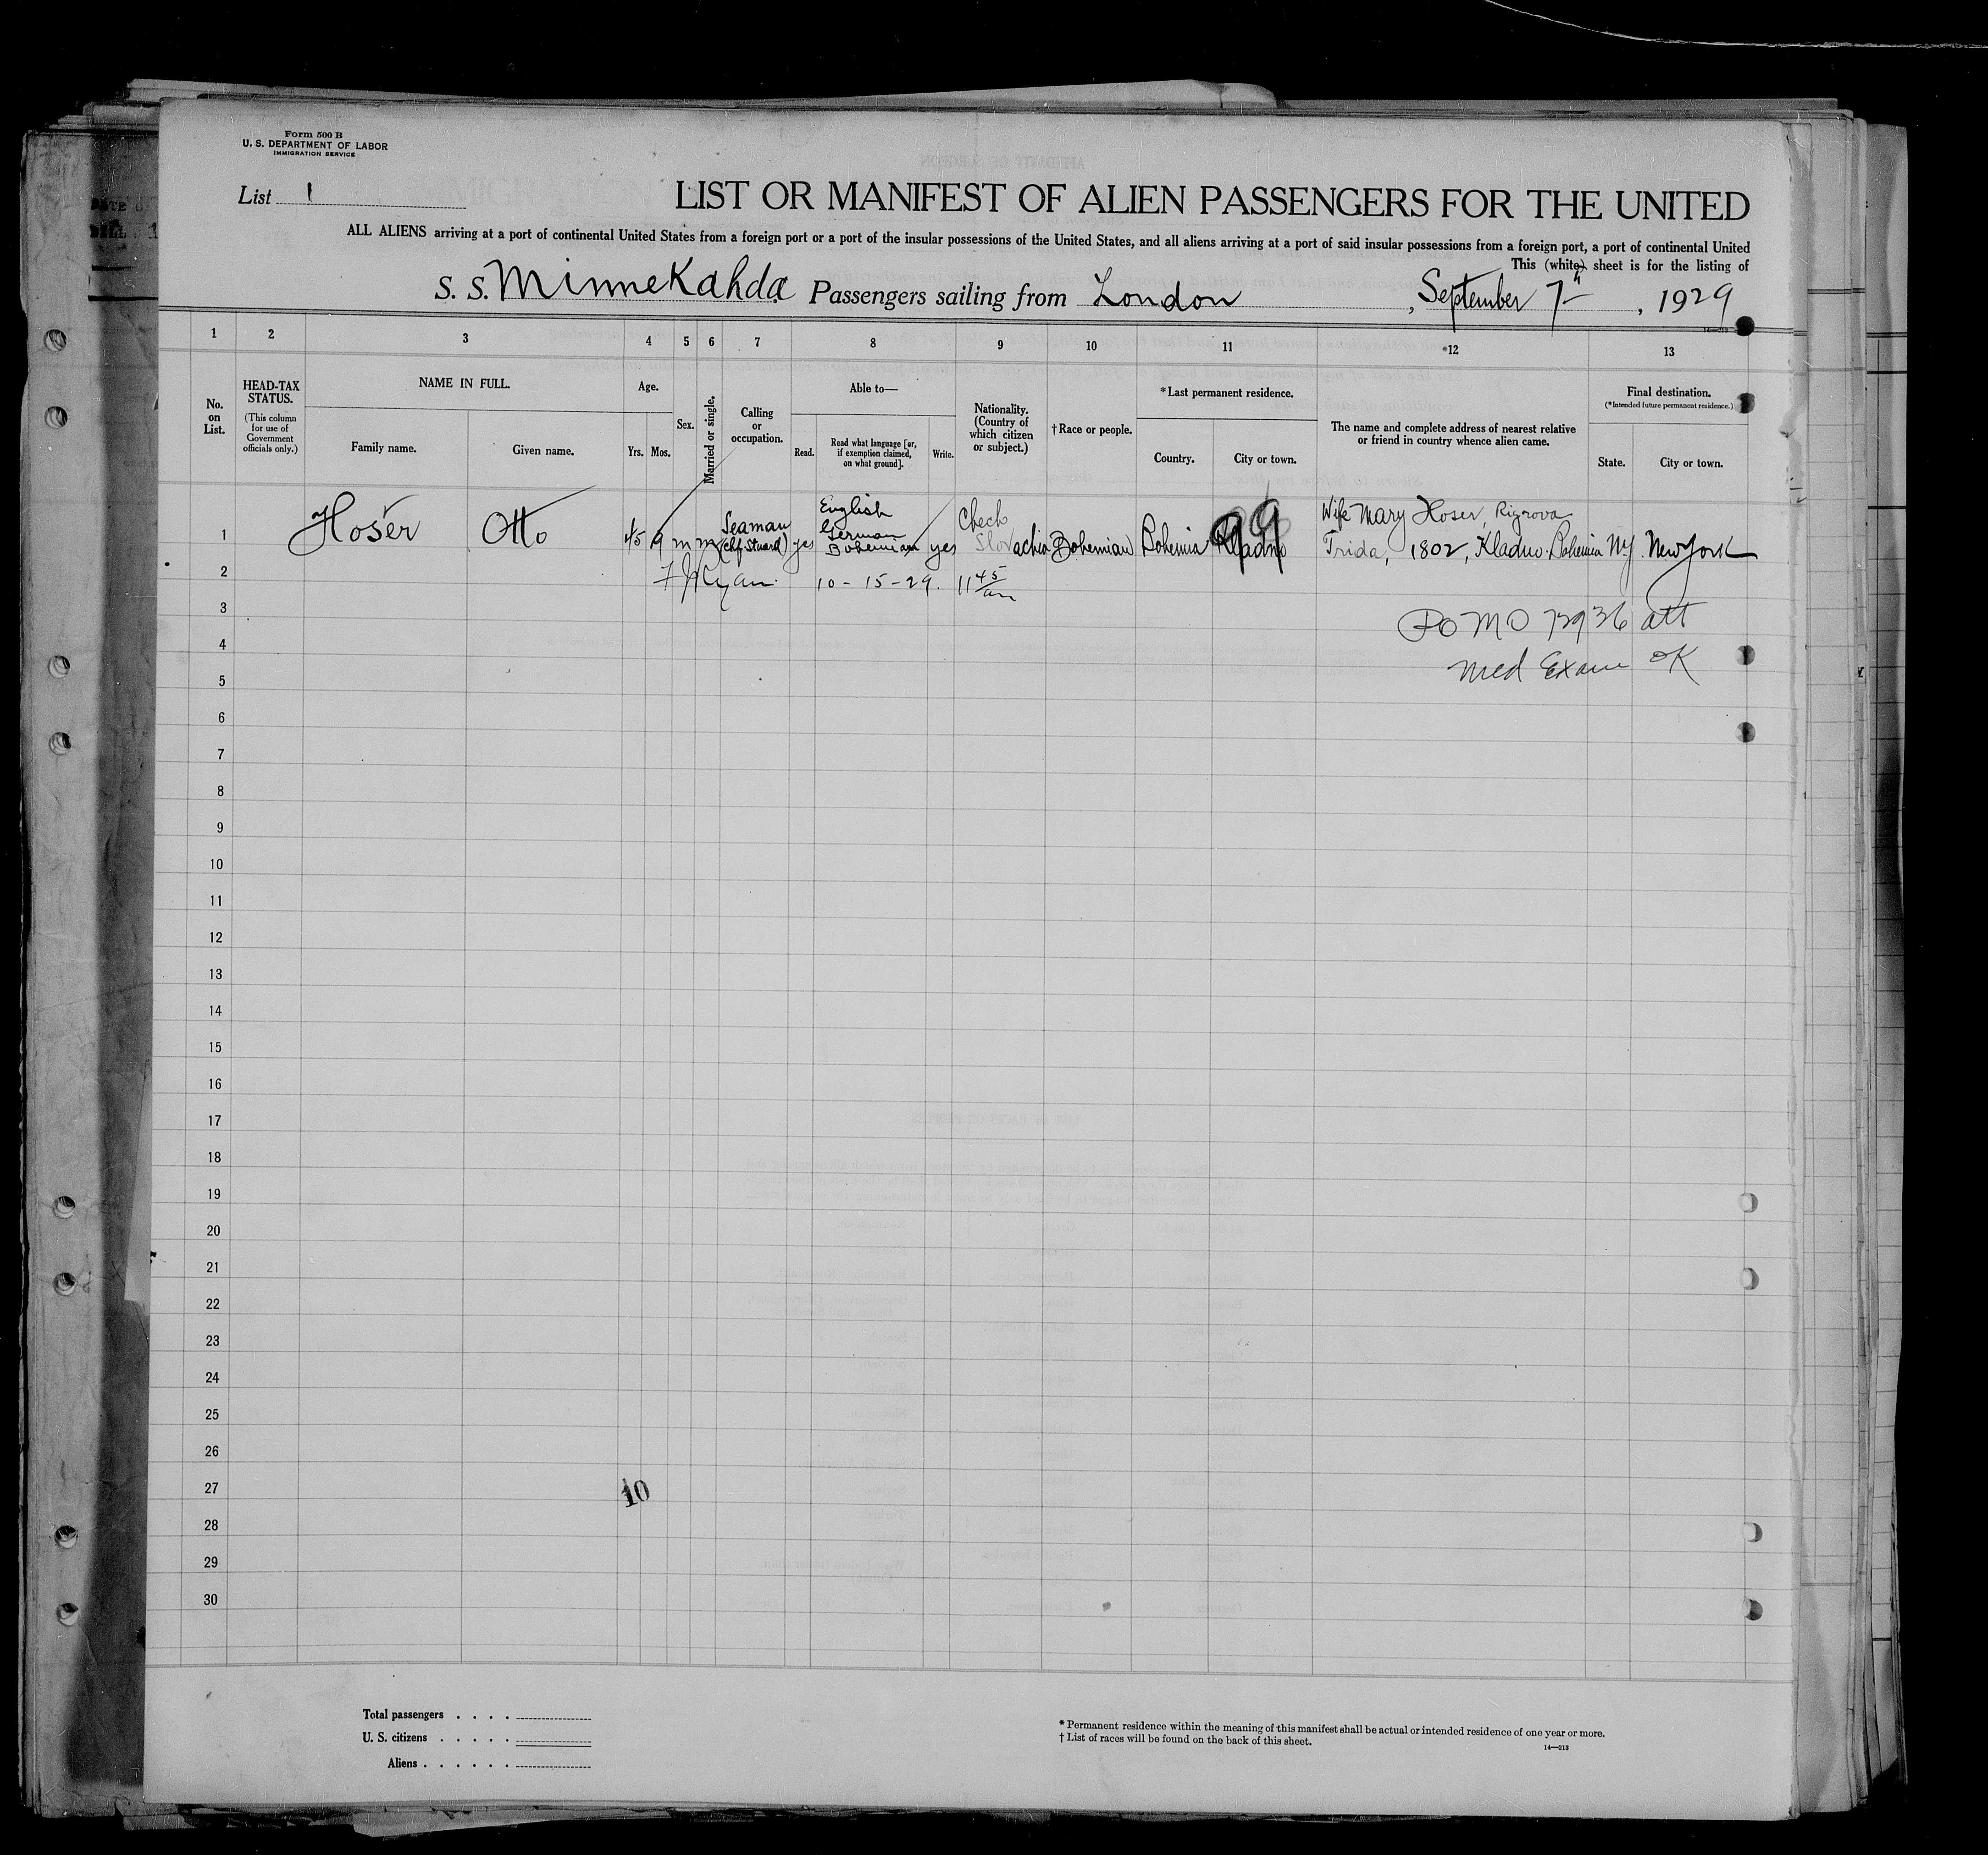 Form 500 B
U. S. DEPARTMENT OF LABOR
IMMIGRATION SERVICE
List 1
LIST OR MANIFEST OF ALIEN PASSENGERS FOR THE UNITED
ALL ALIENS arriving at a port of continental United States from a foreign port or a port of the insular possessions of the United States, and all aliens arriving at a port of said insular possessions from a foreign port, a port of continental United
This (white) sheet is for the listing of
S. S. Minnekahda Passengers sailing from London, September 7th, 1929
14—213
1 2 3 4 5 6 7 8 9 10 11 *12 13
No. on List.
HEAD-TAX STATUS.
(This column for use of Government officials only.)
NAME IN FULL.
Family name.
Given name.
Age.
Yrs. Mos.
Sex.
Married or single.
Calling or occupation.
Able to—
Read.
Read what language [or, if exemption claimed, on what ground].
Write.
Nationality. (Country of which citizen or subject.)
†Race or people.
*Last permanent residence.
Country.
City or town.
The name and complete address of nearest relative or friend in country whence alien came.
Final destination.
(*Intended future permanent residence.)
State.
City or town.
1 Hoser Otto 45 9 m m Seaman (Chf. Stward) yes English German Bohemian yes Check Slovachia Bohemian Bohemia Kladno Wife Mary Hoser, Rigrova Trida, 1802, Kladno. Bohemia N.Y. New York
99
2 10-15-29. 11 45 am
3
PO MO 72936 att
4
Med Exam OK
5
6
7
8
9
10
11
12
13
14
15
16
17
18
19
20
21
22
23
24
25
26
27
10
28
29
30
Total passengers . . . .
U. S. citizens . . . . .
Aliens . . . . . .
* Permanent residence within the meaning of this manifest shall be actual or intended residence of one year or more.
† List of races will be found on the back of this sheet.
14—213